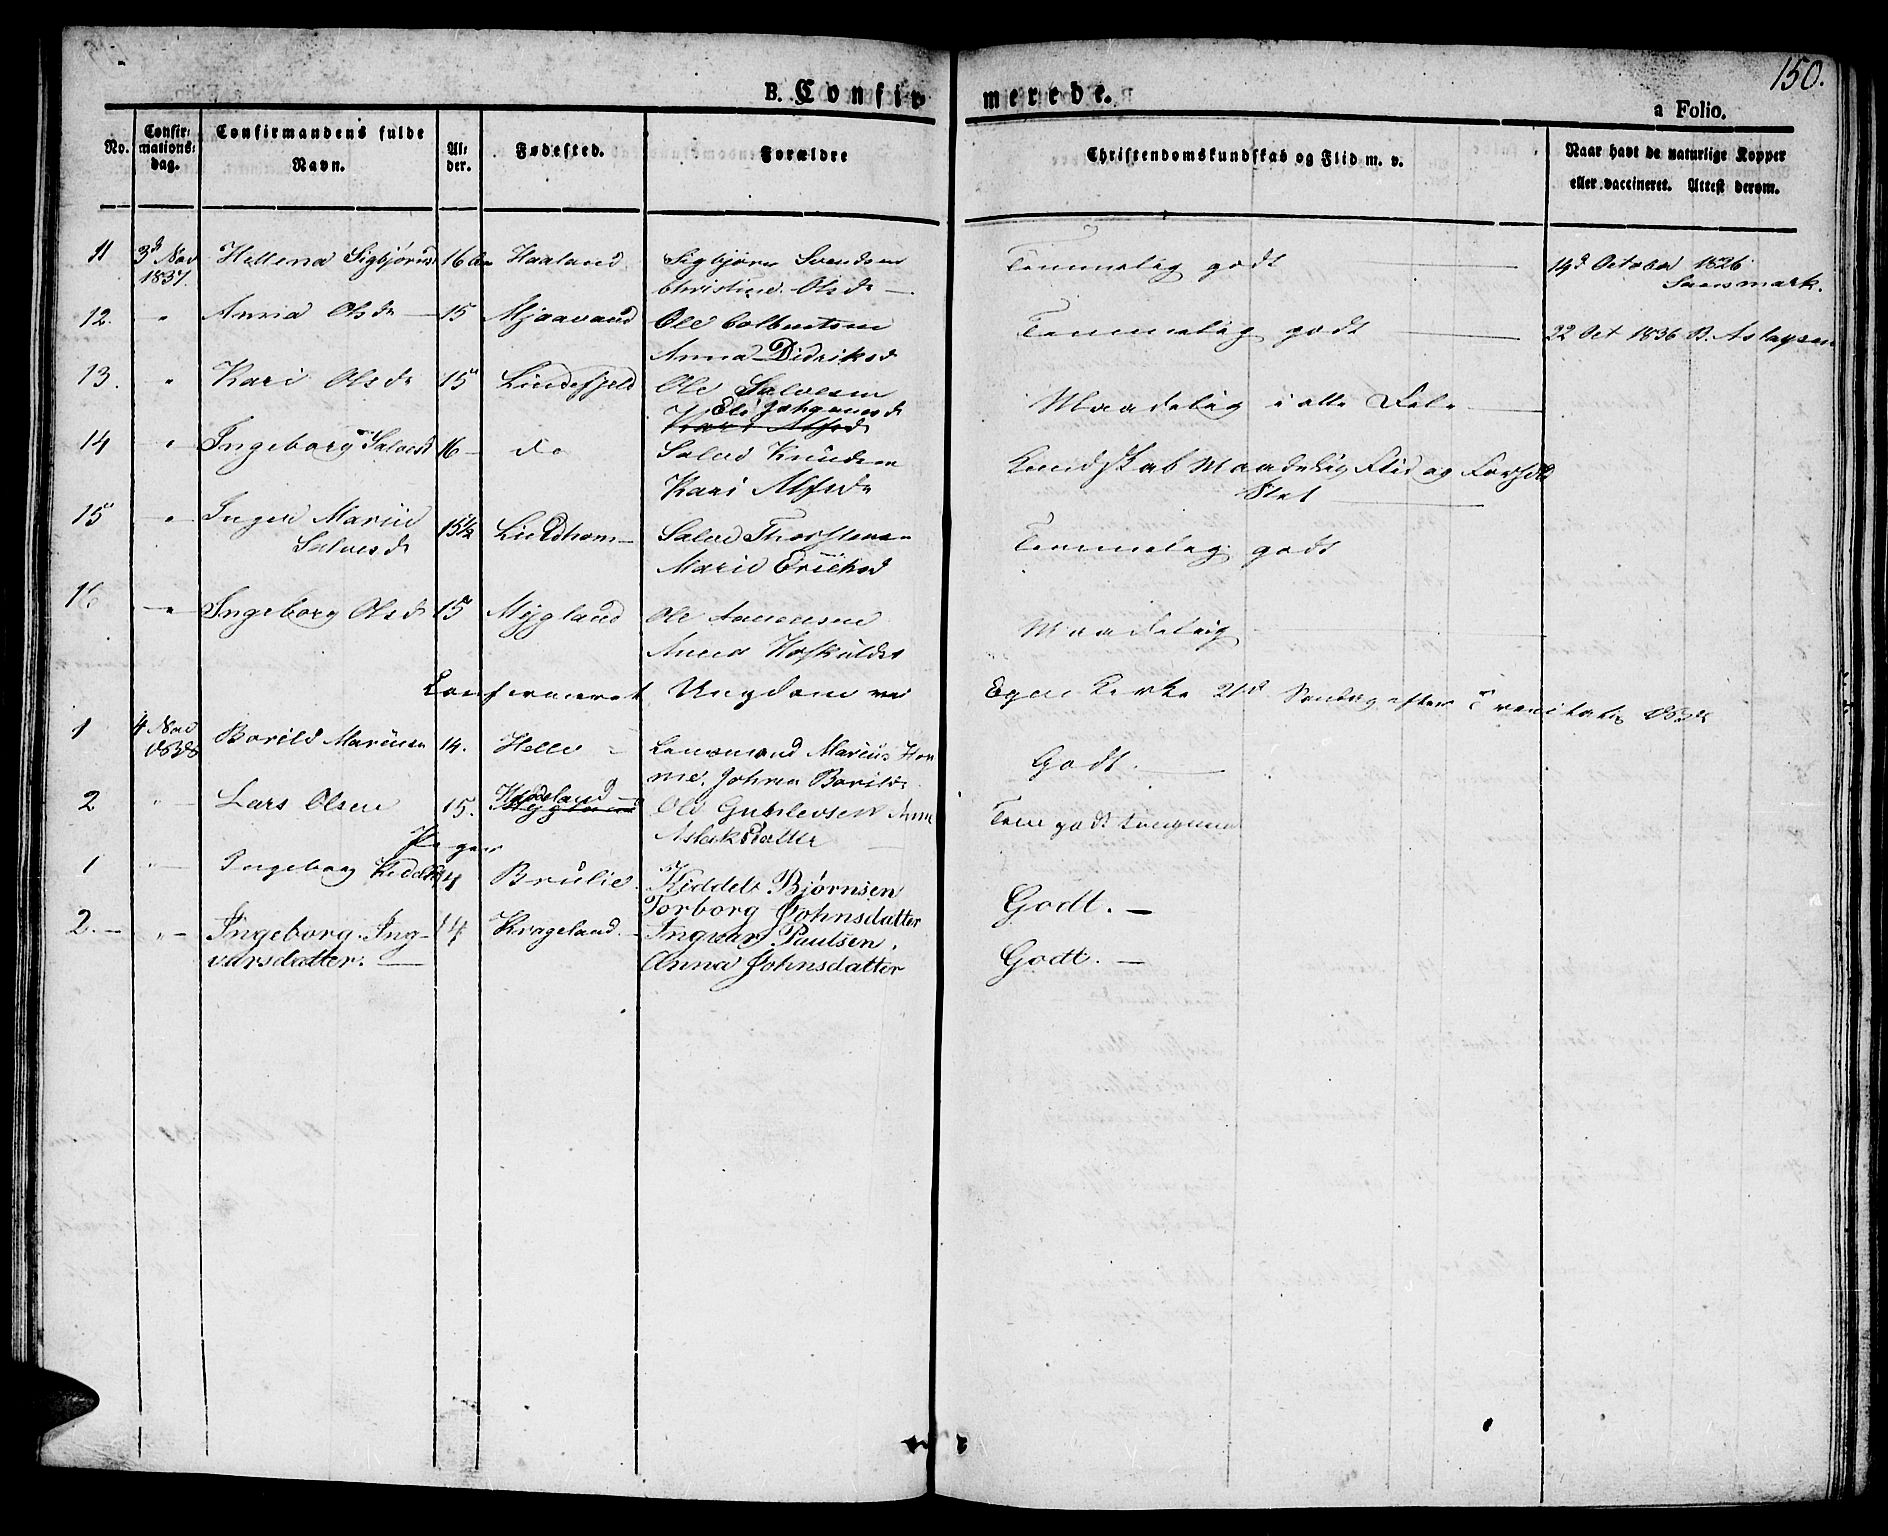 150.
B. Confirmerede.
a Folio.
No.
Confirmationsdag.
Confirmandens fulde Navn.
Alder.
Fødested.
Forældre
Christendomskundskab og Flid m. v.
Naar havt de naturlige Kopper
eller vaccineret. Attest derom.
11 3d Nov 1837. Hellena Sigbjørnsd 16 Aar Haaland Sigbjørn Svendsen Temmelig godt 19d October 1826
Christine Olsd
12. " Anna Olsd 15 Mjaavand Ole Colbentsen Temmelig godt 22 Oct 1836 B. Aslaysen
Anna Didriksd
13. " Kari Olsd 15 Lindefjeld Ole Salvesen Maadelig i alle Dele
Eli Johannesd
Kari Alfsd
14 " Ingeborg Salvesd 16 do Salve Knudsen Kundskab Maadelig Flid og Forhold
Kari Alfsd Slet
15 " Inger Marie Salvesd 15½ Lindham Salve Thorstensen Temmelig godt
Marie Erichsd
16 " Ingeborg Olsd 15 Mygland Ole Aanensen Maadelig
Anna Hoskuldsd
Confirmeret Ungdom ved Egen Kirke 21d Søndag efter Trinitatis 1838
1 4 Nov 1838 Borild Mariusen 14. Helle Lensmand Marius Horme, Johna Borildsd Godt.
2 " Lars Olsen 15. Ole Gunlevsen Ann Tem godt
Aslaksdatter
Piger
1 " Ingeborg Kiddelsd 14 Brulie. Kiddel Bjørnsen Godt.
Torborg Johnsdatter
2. " Ingeborg Ingvarsdatter. 14 Krageland. Ingvar Paulsen. Godt.
Anna Johnsdatter